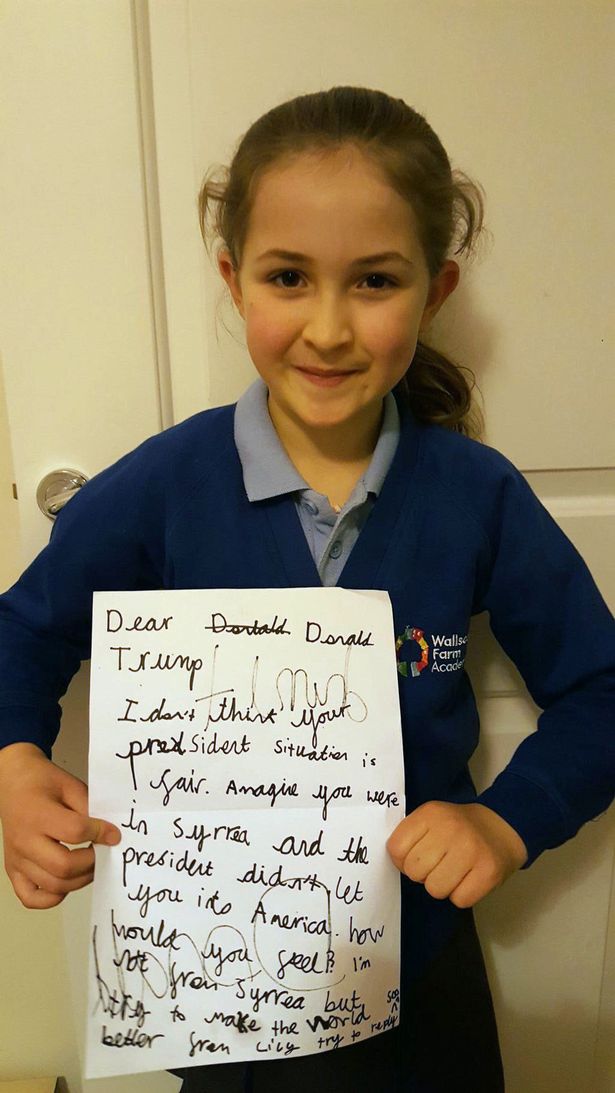 Dear Donald Donald
Trump
I don't think your
president situation is
fair. Amagine you were
in Syrrea and the
president didn't let
you into America. how
would you feel? I'm
not from Syrrea but
try to make the world soo
better from Lily try to reply
Walls
Farm
Acade